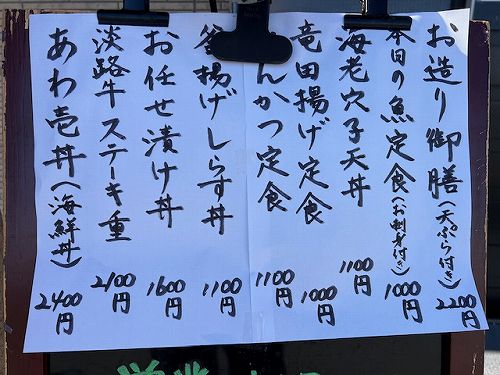 お造り御膳(天ぷら付き)2200円
本日の魚定食(お刺身付き)1000円
海老穴子天丼 1100円
竜田揚げ定食 1000円
んかつ定食 1100円
釜揚げしらす丼 1100円
お任せ漬け丼 1600円
淡路牛ステーキ重 2100円
あわ壱丼(海鮮丼)2400円